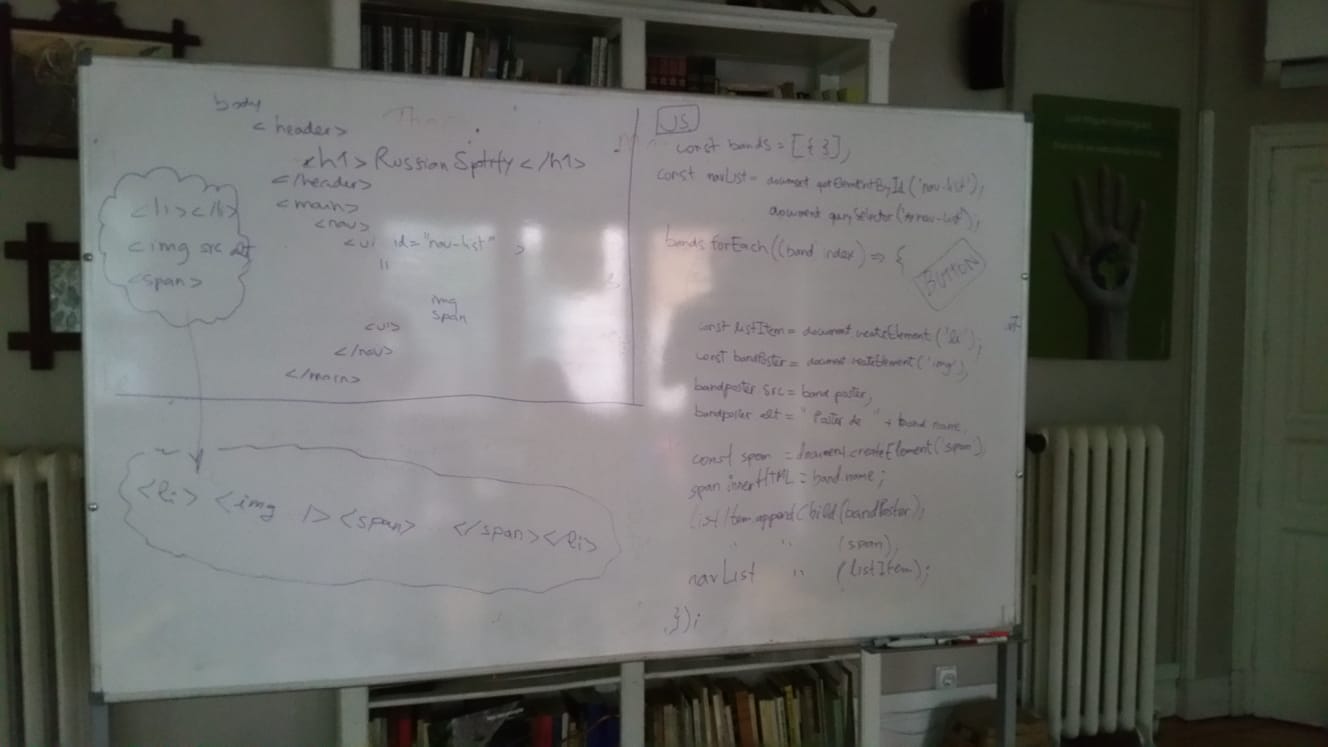 body
<header>
<h1> Russian Spotify </h1>
</header>
<main>
<nav>
<ul id="nav-list" >
"
img
span
<ul>
</nav>
</main>
<li></li>
<img src alt
<span>
<li> <img /> <span> </span></li>
JS
const bands = [{ }];
const navList = document getElementById ('nav-list');
document querySelector ('nav-list');
bands forEach((band index) => {
BUTTON
const listItem = document.createElement ('li');
const bandPoster = document createElement ('img');
bandposter src = band poster;
bandposter alt = "Poster de " + band name
const span = document.createElement('span')
span innerHTML = band.name;
listItem.appendChild(bandPoster);
" " (span);
navList " (listItem);
});